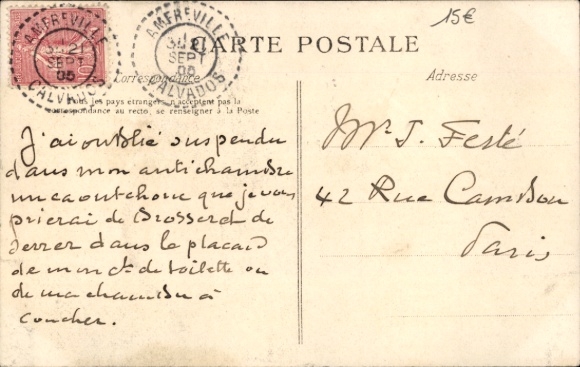 15€
AMFREVILLE
21
SEPT
CALVADOS
AMFREVILLE
SEPT
CALVADOS
CARTE POSTALE
Correspondance
Adresse
Tous les pays étrangers n'acceptent pas la
correspondance au recto, se renseigner à la Poste
J'ai oublié suspendu
dans mon antichambre
un caoutchouc que je vous
prierai de Brosser et de
serrer dans le placard
de mon ct de toilette ou
de ma chambre à
coucher.
Mr J. Festé
42 Rue Cambon
Paris